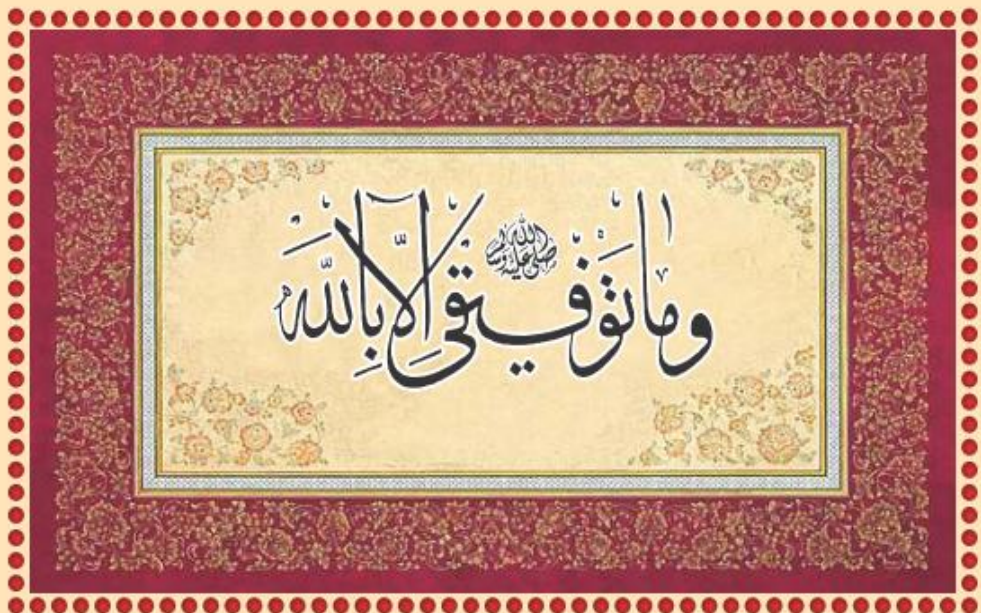 وما توفيقى الا بالله
صلى الله عليه وسلم